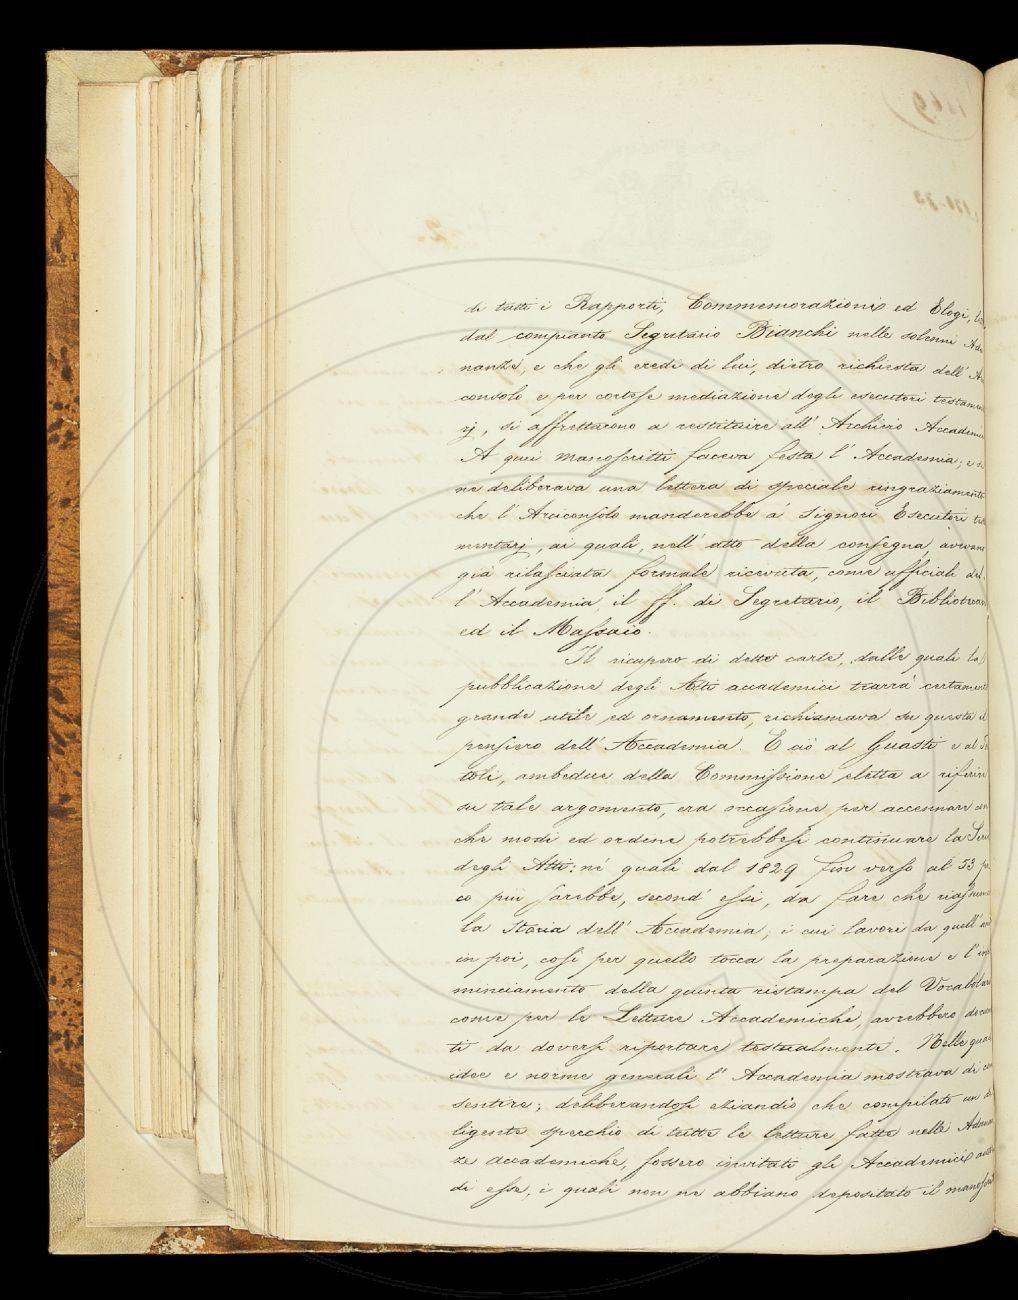 di tutti i Rapporti, Commemorazioni ed Elogi,
dal compianto Segretario Bianchi nelle solenni Adu
nanze, e che gli eredi di lui, dietro richiesta dell' Ar
consolo e per cortese mediazione degli esecutori testamen
rj, si affrettarono a restituire all' Archivio Accademi
A quei manoscritti faceva festa l' Accademia; e
ne deliberava una lettera di speciale ringraziamento
che l' Arciconsolo manderebbe a' Signori Esecutori
mentarj, ai quali, nell' atto della consegna, avevano
già rilasciata formale ricevuta, come ufficiali del
l' Accademia, il ff. di Segretario, il Bibliotecar
ed il Massaio.
Il ricupero di dette carte, dalle quali la
pubblicazione degli Atti accademici trarrà certament
grande utile ed ornamento, richiamava su questa il
pensiero dell' Accademia. E ciò al Guasti e al
toli, ambedue della Commissione eletta a riferire
su tale argomento, era occasione per accennare con
che modi ed ordine potrebbesi continuare la Seri
degli Atti: ne' quali dal 1829 fin verso al 53 po
co più sarebbe, second' essi, da fare che riassume
la Storia dell' Accademia, i cui lavori da quell' an
in poi, così per quello tocca la preparazione e l' in
minciamento della quinta ristampa del Vocabolar
come per le Letture Accademiche, avrebbero docum
ti da doversi riportare testualmente. Nelle quali
idee e norme generali l' Accademia mostrava di con
sentire; deliberandosi eziandio che compilato un di
ligente specchio di tutte le letture fatte nelle Adunan
ze accademiche, fossero invitati gli Accademici aut
di esse, i quali non ne abbiano depositato il manoscrit